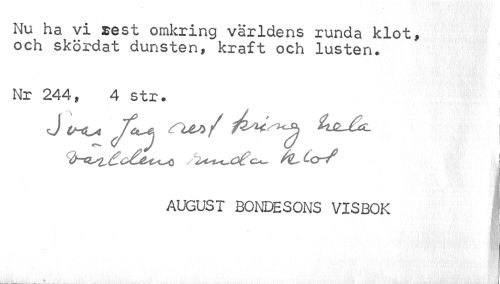 Nu ha vi rest omkring världens runda klot,
och skördat dunsten, kraft och lusten.
Nr 244, 4 str.
Svar Jag rest kring hela
världens runda klot
AUGUST BONDESONS VISBOK